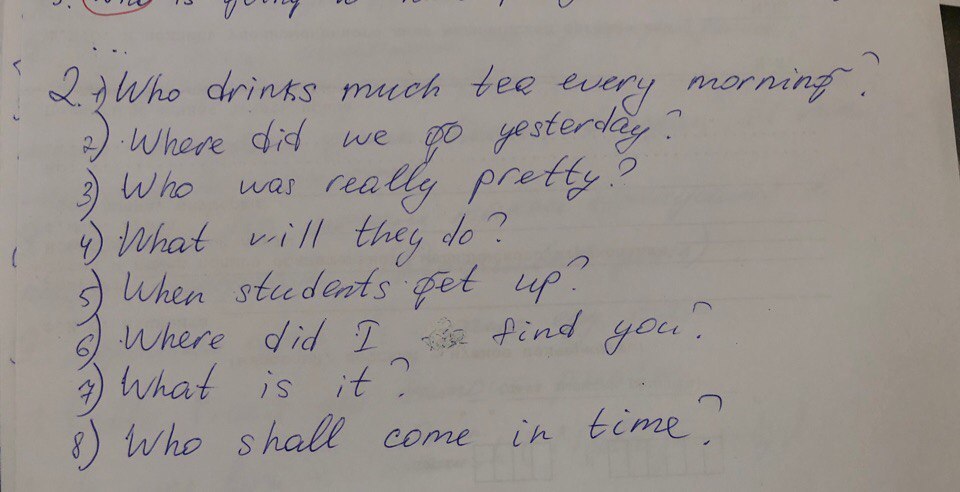 ...
2. 1) Who drinks much tea every morning?
2) Where did we go yesterday?
3) Who was really pretty?
4) What will they do?
5) When students get up?
6) Where did I find you?
7) What is it?
8) Who shall come in time?